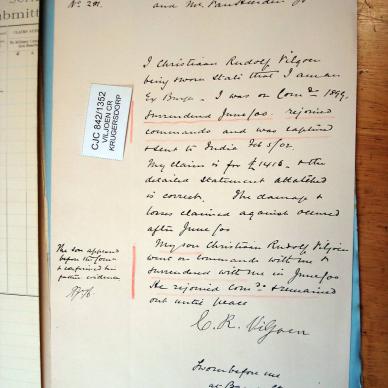 No. 291.
and Mr. Van Heerden
I Christiaan Rudolf Viljoen
being sworn state that I am an
Ex Burgher. I was on Comdo 1899.
Surrendered June/00. rejoined
commando and was captured
& sent to India Feb 5/02
My claim is for £1416. & the
detailed statement attached
is correct. The damage &
losses claimed against occurred
after June/00
My son Christiaan Rudolf Viljoen
went on commando with me &
surrendered with me in June/00
He rejoined comdo & remained
out until peace
C. R. Viljoen
Sworn before me
at
CJC 842/1352
VILJOEN CR
KRUGERSDORP
The son appeared
before the
& confirmed his
father's evidence